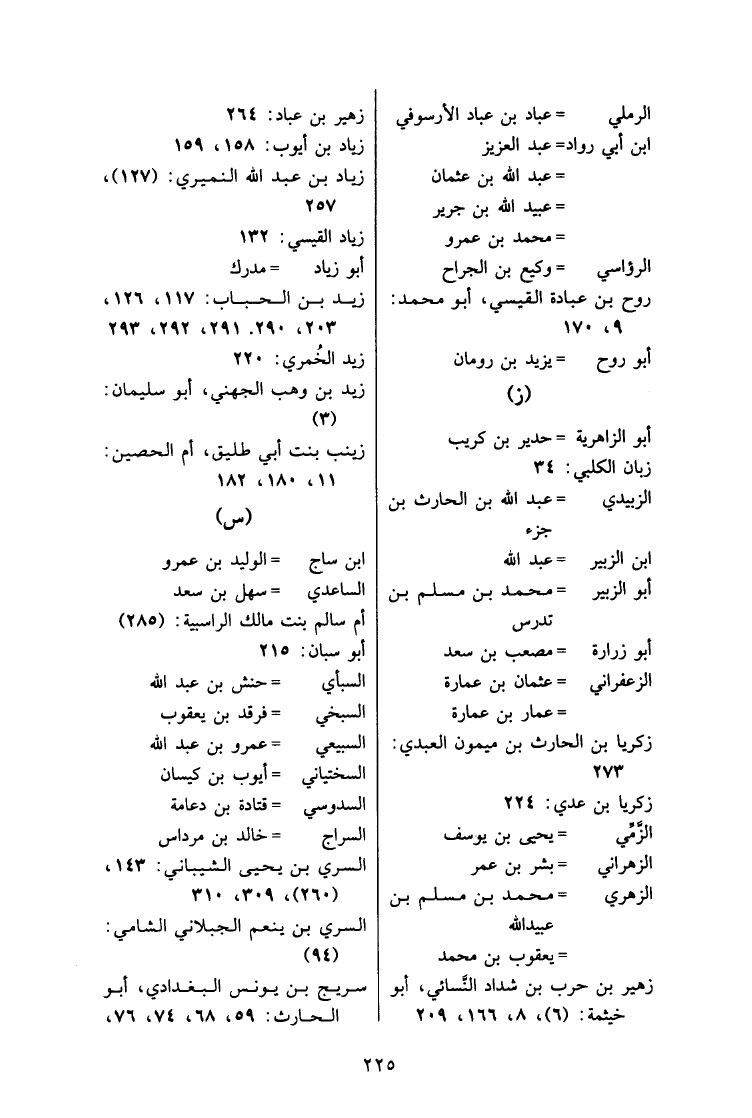 الرملي = عباد بن عباد الأرسوفي
ابن أبي رواد= عبد العزيز
= عبد الله بن عثمان
= عبيد الله بن جرير
= محمد بن عمرو
الرؤاسي = وكيع بن الجراح
روح بن عبادة القيسي، أبو محمد:
٩، ١٧٠
أبو روح = يزيد بن رومان
(ز)
أبو الزاهرية = حدير بن كريب
زبان الكلبي: ٣٤
الزبيدي = عبد الله بن الحارث بن
جزء
ابن الزبير = عبد الله
أبو الزبير = محمد بن مسلم بن
تدرس
أبو زرارة = مصعب بن سعد
الزعفراني = عثمان بن عمارة
= عمار بن عمارة
زكريا بن الحارث بن ميمون العبدي:
٢٧٣
زكريا بن عدي: ٢٢٤
الزَّمِّي = يحيى بن يوسف
الزهراني = بشر بن عمر
الزهري = محمد بن مسلم بن
عبيدالله
= يعقوب بن محمد
زهير بن حرب بن شداد النَّسائي، أبو
خيثمة: (٦)، ٨، ١٦٦، ٢٠٩
زهير بن عباد: ٢٦٤
زياد بن أيوب: ١٥٨، ١٥٩
زياد بن عبد الله النميري: (١٢٧)،
٢٥٧
زياد القيسي: ١٣٢
أبو زياد = مدرك
زيد بن الحباب: ١١٧، ١٢٦،
٢٠٣، ٢٩٠. ٢٩١، ٢٩٢، ٢٩٣
زيد الخُمري: ٢٢٠
زيد بن وهب الجهني، أبو سليمان:
(٣)
زينب بنت أبي طليق، أم الحصين:
١١، ١٨٠، ١٨٢
(س)
ابن ساج = الوليد بن عمرو
الساعدي = سهل بن سعد
أم سالم بنت مالك الراسبية: (٢٨٥)
أبو سبان: ٢١٥
السبأي = حنش بن عبد الله
السبخي = فرقد بن يعقوب
السبيعي = عمرو بن عبد الله
السختياني = أيوب بن كيسان
السدوسي = قتادة بن دعامة
السراج = خالد بن مرداس
السري بن يحيى الشيباني: ١٤٣،
(٢٦٠)، ٣٠٩، ٣١٠
السري بن ينعم الجبلاني الشامي:
(٩٤)
سريج بن يونس البغدادي، أبو
الحارث: ٥٩، ٦٨، ٧٤، ٧٦،
٢٢٥